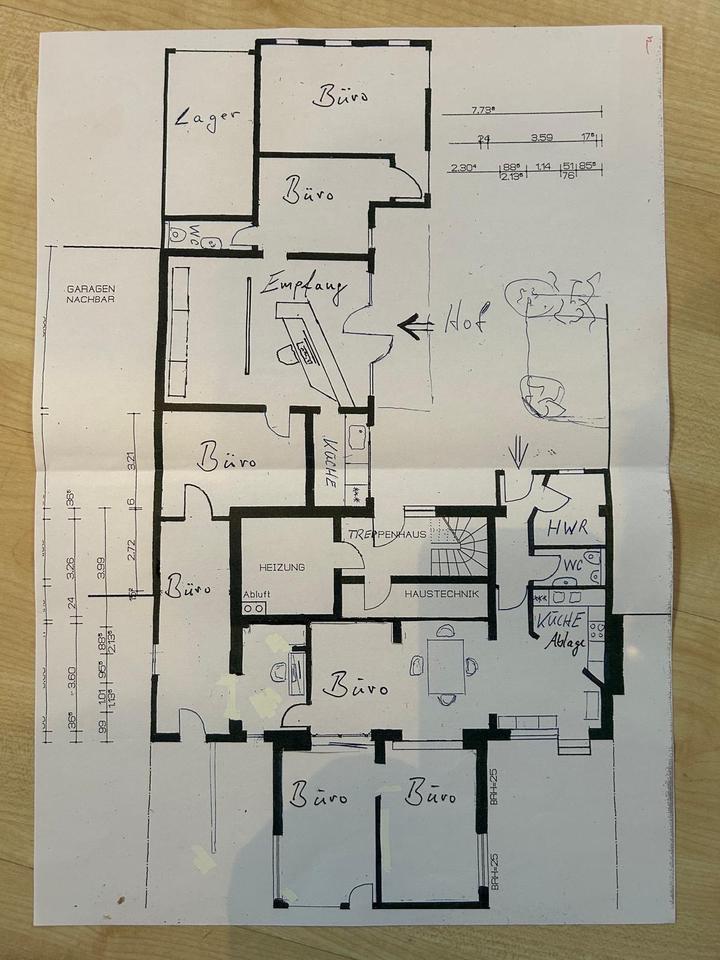 Lager
Büro
7.73⁵
24
3.59
17⁵
2.30⁴
88⁵
2.13⁵
1.14
51
76
85⁵
Büro
WC
GARAGEN
NACHBAR
Empfang
Hof
Büro
KÜCHE
***
3.21
36⁵
6
TREPPENHAUS
HWR
2.72
3.99
3.26
HEIZUNG
WC
Büro
Abluft
HAUSTECHNIK
***
KÜCHE
Ablage
24
88⁵
2.13⁵
3.60
95⁵
1.01
1.13⁵
Büro
36⁵
99
Büro
Büro
BRH=25
BRH=25